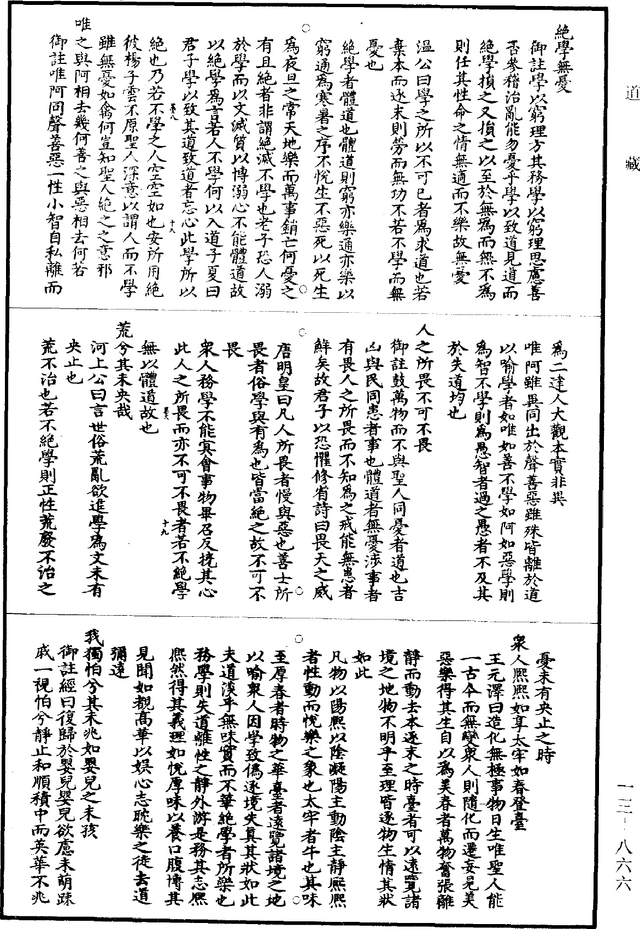 道藏
絶學無憂
御註學以窮理方其務學以窮理思慮善
否參稽治亂能勿憂乎學以致道見道而
絶學損之又損之以至於無為而無不為
則任其性命之情無適而不樂故無憂
溫公曰學之所以不可已者為求道也若
棄本而逐末則勞而無功不若不學而無
憂也
絶學者體道也體道則窮亦樂通亦樂以
窮通為寒暑之序不悅生不惡死以死生
為夜旦之常天地樂而萬事銷亡何憂之
有且絶者非謂絶滅不學也老子恐人溺
於學而以文滅質以博溺心不能體道故
以絶學為言若人不學何以入道子夏曰
君子學以致其道致道者忘心此學所以
絶也乃若不學之人空空如也安所用絶
彼楊子雲不原聖人深意以謂人而不學
雖無憂如禽何豈知聖人絶之之意邪
唯之與阿相去幾何善之與惡相去何若
御註唯阿同聲善惡一性小智自私離而
為二達人大觀本實非異
唯阿雖異同出於聲善惡雖殊皆離於道
以喻學者如唯如善不學如阿如惡學則
為智不學則為愚智者過之愚者不及其
於失道均也
人之所畏不可不畏
御註鼓萬物而不與聖人同憂者道也吉
凶與民同患者事也體道者無憂涉事者
有畏人之所畏而不知為之戒能無患者
鮮矣故君子以恐懼修省詩曰畏天之威
唐明皇曰凡人所畏者慢與惡也善士所
畏者俗學與有為也皆當絶之故不可不
畏
衆人務學不能冥會事物畢召反撓其心
此人之所畏而亦不可不畏者若不絶學
無以體道故也
荒兮其未央哉
河上公曰言世俗荒亂欲進學為文未有
央止也
荒不治也若不絶學則正性荒廢不治之
憂未有央止之時
衆人熙熙如享太牢如春登臺
王元澤曰造化無極事物日生唯聖人能
一古今而無變衆人則隨化而遷妄見美
惡樂得其生自以為美春者萬物奮張離
靜而動去本逐末之時臺者可以遠覽諸
境之地物不明乎至理皆逐物生情其狀
如此
凡物以陽熙以陰凝陽主動陰主靜熙熙
者性動而悅樂之象也太牢者牛也其味
至厚春者時物之華臺者遠覽諸境之地
以喻衆人因學致偽逐境失真其狀如此
夫道淡乎無味實而不華絶學者所樂也
務學則失道離性之靜外游是務其志熙
熙然得其義理如悅厚味以養口腹博其
見聞如觀高華以娱心志耽樂之徒去道
彌遠
我獨怕兮其未兆如嬰兒之未孩
御註經曰復歸於嬰兒嬰兒欲慮未萌踈
戚一視怕兮靜止和順積中而英華不兆
一三－八六六